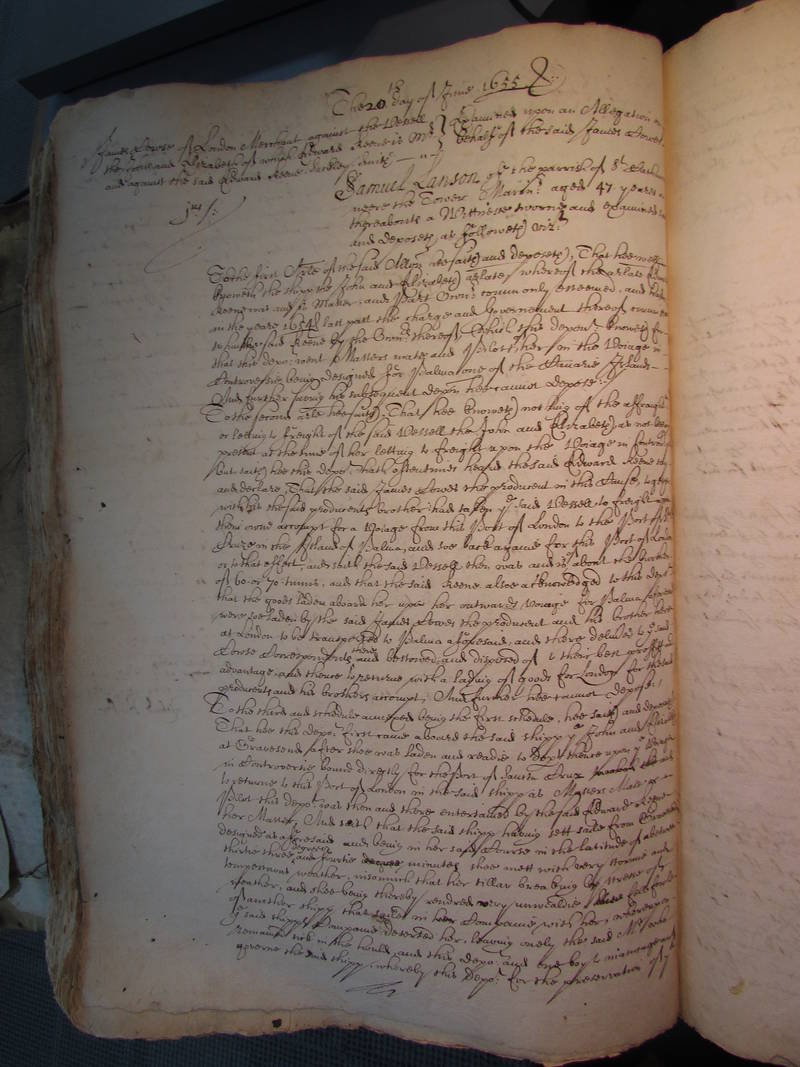 The 20th day of June 1655
James Lowse of London Merchant against the Vessell
the John and Elizabeth of which Edward Keene is Mr.
and against the said Edward Keene
Examined upon an Allegation
behalfe of the said James Lowse
Samuel Lanson of the parrish of St
neere the Tower Marinr. aged 47 yeares
thereabouts a Witnesse sworne and examined
and deposeth as followeth vizt.
jus
To the first Arle of the said Allon hee saith and deposeth, That hee well
knoweth the shipp the John and Elizabeth arlate whereof the arlate
Keene was and is Master and Part Ownr. comonly esteemed, and
in the yeare 1654 last past the charge and Government thereof
to the said Keene by the Ownrs. thereof Which this deponent knoweth for
that this depont. went Masters mate and Pilot of her in the Voiage in
Controversie being designed for Palma one of the Canarie Islands
And further saving his subsequent deposn. hee cannot depose:
To the second arle hee saith, That hee knoweth nothing of the affreight
or letting to freight of the said Vessell the John and Elizabeth, as not being
present at the time of her letting to freight upon the Voiage in
but saith hee this depot. hath oftentimes heard the said Edward Keene say
and declare, That the said James Lowse the producent in this Cause, together
with his the said producents brother had taken ye. said Vessell to freight upon
their owne accompt for a Voiage from this Port of London to the Port of
Cruze in the Island of Palma, and soe back againe for this Port of London
or to that effect, and saith the said Vessell then was and is about the burthen
of 60 or 70 tunns, and that the said Keene alsoe acknowledged to this depot.
that the goods laden aboard her upon her outwards Voiage for Palma
were soe laden by the said James Lowse the producent and his brother here
at London to be transported to Palma aforesaid, and there delivered to ye. said
Lowse Correspondents and bestowed and disposed of to their best proffitt
advantage, and thence to returne with a lading of goods for London for the said
producents and his brothers accompt, And further hee cannot depose:
To the third and schedule annexed being the first schedule, hee saith and deposeth
That hee this depot. first came aboard the said shipp ye. John and Elizabeth
at Gravesend after shee was laden and readie to depart thence upon ye. Voiage
in Controversie bound directly for the Port of Santa Cruz
to returne to this Port of London in the said shipp as Masters Mate or
Pilot this depot. was then and there entertained by the said Edward Keene
her Master, And saith that the said shipp having sett saile from Gravesend
designed as aforesaid and being in her said Course in the latitude of about
thirtie three degrees and fourtie minutes shee mett with very stormie and
tempestuous weather, insomuch that her tillar breaking by stresse of
weather, and shee being thereby rendred very unweildie
of another shipp that sailed in her Companie with her, whereupon
ye. said shipps Companie deserted her, leaving onely the said Mr.
remained sick in the hould, and this depot. and one boy to mannage and
governe the said shipp, whereby this Depot. for the preservation of ye.